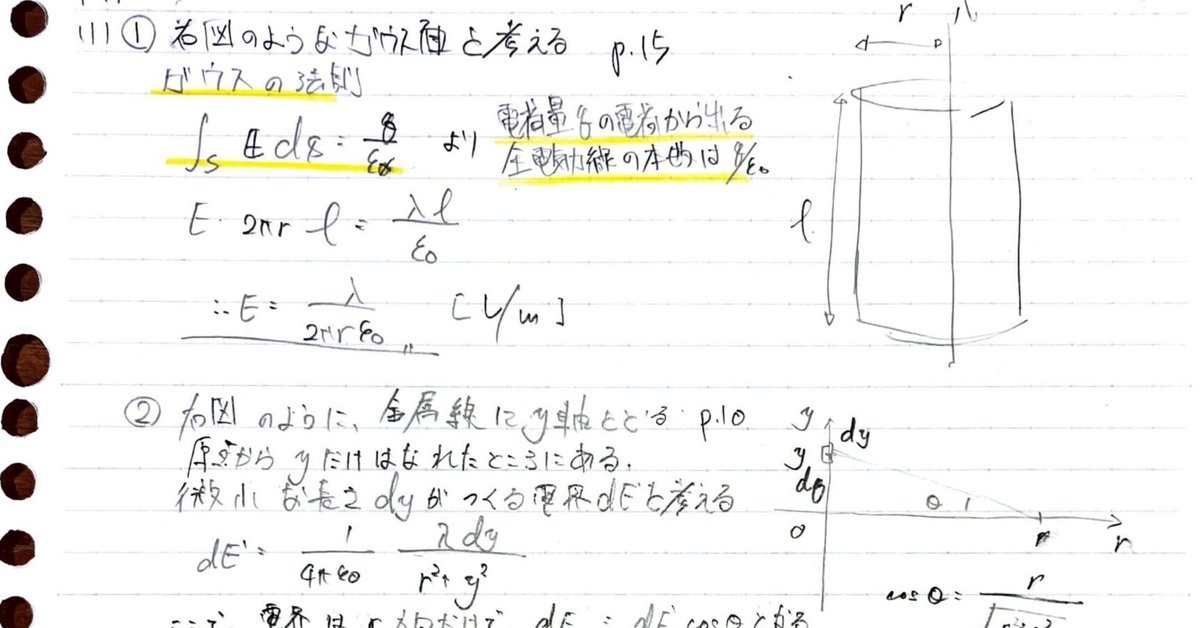 (1) ① 右図のようなガウス面を考える p.15
ガウスの法則
∫S E dS = q/ε0 より 電荷量qの電荷から出る
全電気力線の本数は q/ε0
E・2πr l = λl/ε0
∴E = λ/2πrε0 [V/m]
r
l
② 右図のように、金属線にy軸をとる p.10
原点からyだけはなれたところにある。
微小な長さdyがつくる電界dE'を考える
dE' = 1/4πε0 λdy/r²+y²
y
y dy
0 θ r
cosθ = r/
電界はr方向だけで dE = dE'cosθとなる